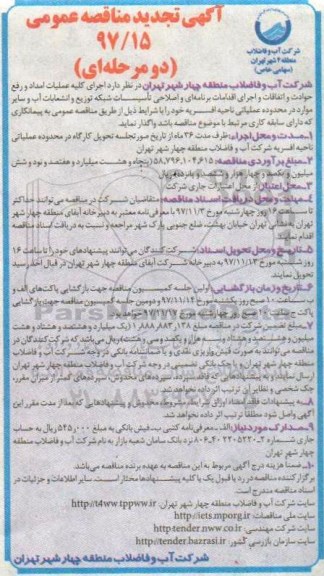 آگهی تجدید مناقصه عمومی
۹۷/۱۵
(دو مرحله‌ای)
شرکت آب و فاضلاب
منطقه ۴ شهر تهران
(سهامی خاص)
شرکت آب و فاضلاب منطقه چهار شهر تهران در نظر دارد اجرای کلیه عملیات امداد و رفع
حوادث و اتفاقات و اجرای اقدامات برنامه‌ای و اصلاحی تأسیسات شبکه توزیع و انشعابات آب و سایر
موارد در محدوده عملیاتی ناحیه افسریه خود را با شرایط ذیل از طریق مناقصه عمومی به پیمانکاری
که دارای سابقه کاری مرتبط با موضوع مناقصه باشد واگذار نماید.
۱_مدت و محل اجراء: ظرف مدت ۳۶ ماه از تاریخ صورتجلسه تحویل کارگاه در محدوده عملیاتی
ناحیه افسریه شرکت آب و فاضلاب منطقه چهار شهر تهران
۲_مبلغ برآوردی مناقصه: ۵۸,۷۹۶,۱۰۴,۶۱۵ (پنجاه و هشت میلیارد و هفتصد و نود و شش
میلیون و یکصد و چهار هزار و ششصد و پانزده) ریال
۳_محل اعتبار: از محل اعتبارات جاری شرکت
۴_مهلت و محل دریافت اسناد مناقصه: متقاضیان شرکت در مناقصه می‌توانند حداکثر
تا ساعت ۱۶ روز چهارشنبه مورخ ۹۷/۱۱/۳ با معرفی‌نامه معتبر به دبیرخانه آبفای منطقه چهار شهر
تهران به نشانی تهران خیابان بهشت، ضلع جنوبی پارک شهر مراجعه و نسبت به دریافت اسناد مناقصه
اقدام نمایند.
۵_تاریخ و محل تحویل اسناد: شرکت‌کنندگان می‌توانند پیشنهادهای خود را تا ساعت ۱۶
روز شنبه مورخ ۹۷/۱۱/۱۳ به دبیرخانه شرکت آبفای منطقه چهار شهر تهران در قبال اخذ رسید
تحویل نمایند.
۶_تاریخ و زمان بازگشایی: اولین جلسه کمیسیون مناقصه جهت بازگشایی پاکت‌های الف و
ب ساعت ۱۰ صبح روز یکشنبه مورخ ۹۷/۱۱/۱۴ و دومین جلسه کمیسیون مناقصه جهت بازگشایی
۷_مبلغ تضمین شرکت در مناقصه مبلغ ۱,۸۸۸,۸۸۳,۱۳۸ (یک میلیارد و هشتصد و هشتاد و هشت
میلیون و هشتصد و هشتاد و سه هزار و یکصد و سی و هشت) ریال می‌باشد که شرکت‌کنندگان در
چک شخصی و نظایر آن ترتیب اثر داده نخواهد شد.
۸_به پیشنهادات فاقد امضاء دارای ابهام، مشروط، مخدوش و پیشنهادهایی که بعد از مدت مقرر این
آگهی واصل شود مطلقاً ترتیب اثر داده نخواهد شد.
۹_مدارک مورد نیاز: الف_معرفی‌نامه کتبی ب_فیش بانکی به مبلغ ۵۴۵,۰۰۰ ریال به حساب
منطقه چهار شهر تهران
۱۰_ضمناً هزینه درج آگهی مربوط به این مناقصه به عهده برنده مناقصه می‌باشد.
برگزارکننده مناقصه در رد یا قبول یک یا کلیه پیشنهادها مختار است. سایر اطلاعات و جزئیات در
اسناد مناقصه مندرج است.
سایت شرکت آب و فاضلاب منطقه چهار شهر تهران: http://t4ww.tppww.ir
سایت ملی مناقصات: http://iets.mporg.ir
سایت شرکت مهندسی: http:tender.nww.co.ir
سایت سازمان بازرسی کشور: http://tender.bazrasi.ir
شرکت آب و فاضلاب منطقه چهار شهر تهران